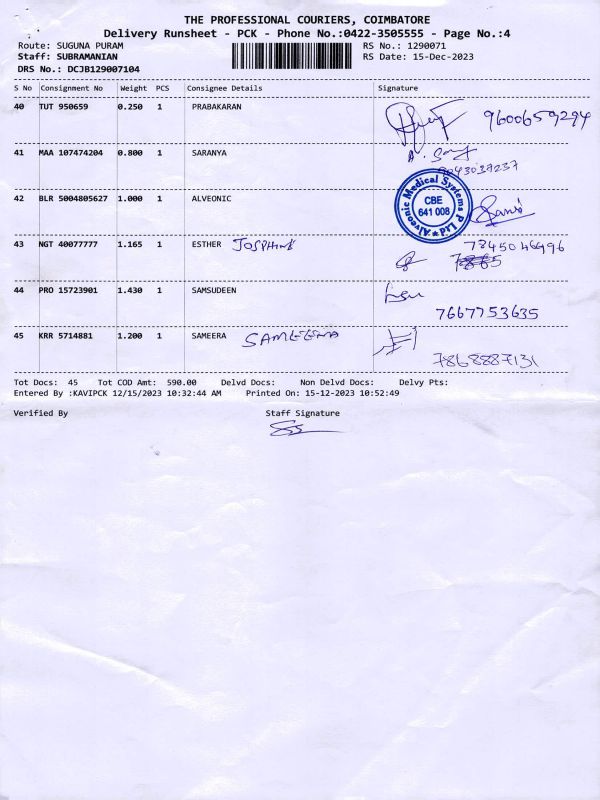 THE PROFESSIONAL COURIERS, COIMBATORE
Delivery Runsheet - PCK - Phone No.:0422-3505555 - Page No.:4
Route: SUGUNA PURAM RS No.: 1290071
Staff: SUBRAMANIAN RS Date: 15-Dec-2023
DRS No.: DCJB129007104
S No Consignment No Weight PCS Consignee Details Signature
40 TUT 950659 0.250 1 PRABAKARAN 9600659294
41 MAA 107474204 0.800 1 SARANYA
9043039237
42 BLR 5004805627 1.000 1 ALVEONIC
Alveonic Medical Systems P Ltd
CBE
641 008
43 NGT 40077777 1.165 1 ESTHER JOSPHINE 7845046996
44 PRO 15723901 1.430 1 SAMSUDEEN
7667753635
45 KRR 5714881 1.200 1 SAMEERA SAMEENA
7868887131
Tot Docs: 45 Tot COD Amt: 590.00 Delvd Docs: Non Delvd Docs: Delvy Pts:
Entered By :KAVIPCK 12/15/2023 10:32:44 AM Printed On: 15-12-2023 10:52:49
Verified By Staff Signature